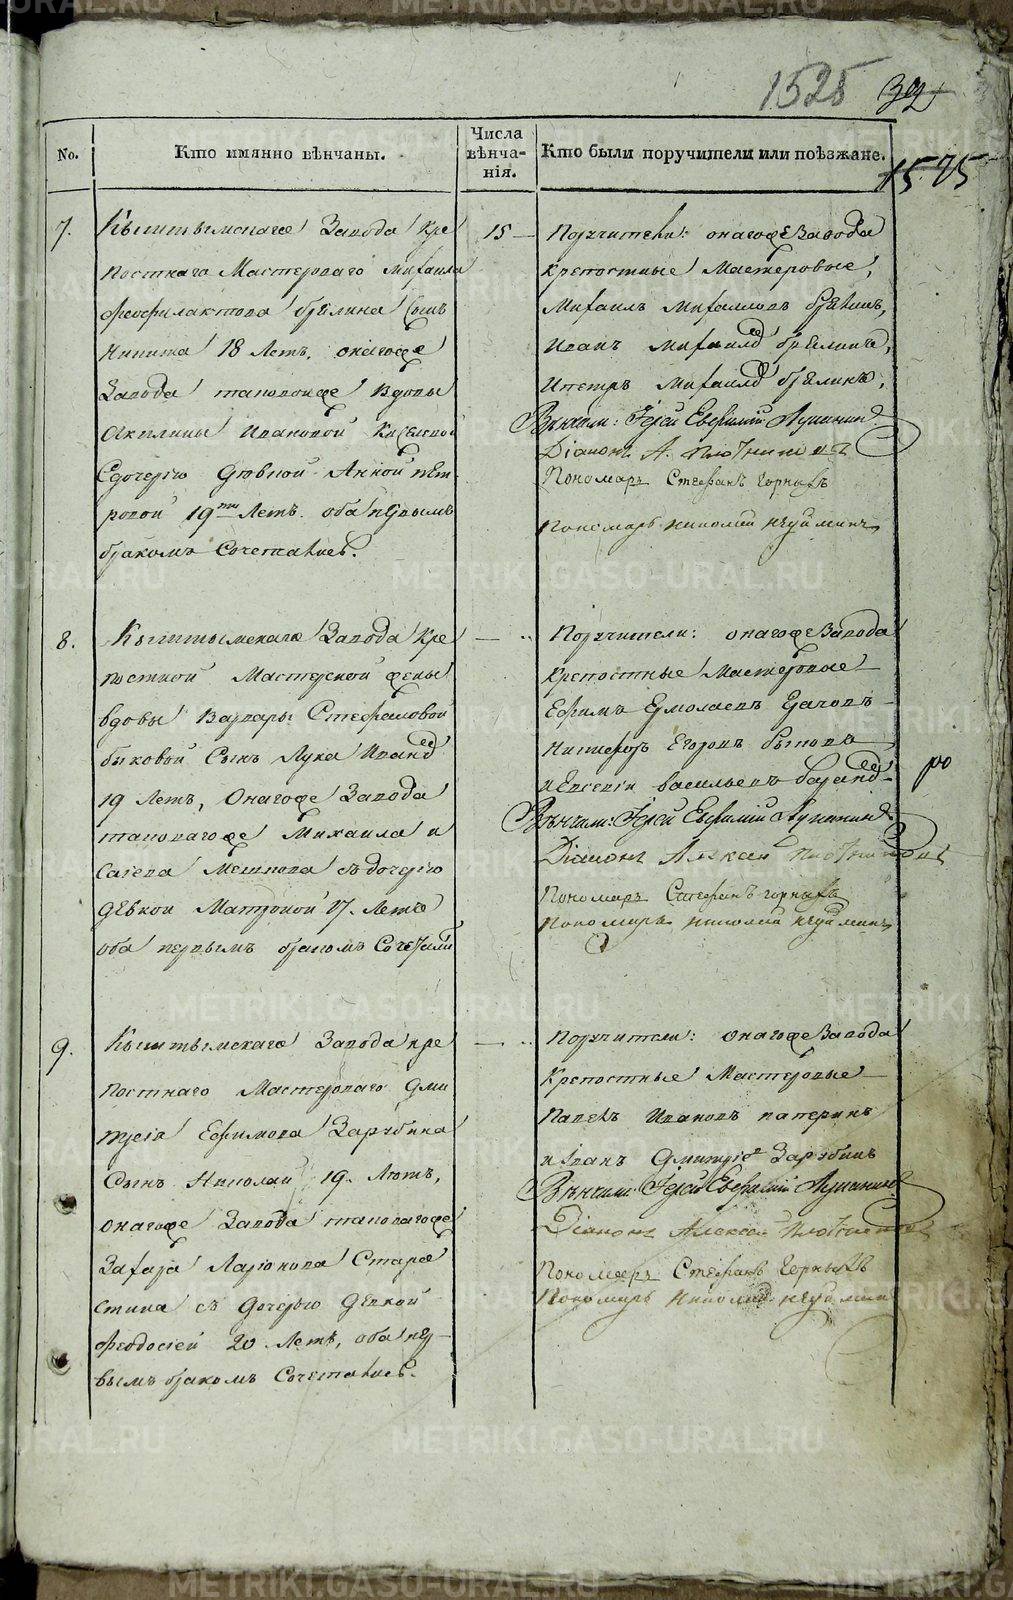 1525 32
1575
No.
Кто имянно вѣнчаны.
Числа
вѣнча-
нія.
Кто были поручители или поѣзжане.
7.
Кыштымскаго Завода Кре
постнаго Мастероваго Михаила
Феофилактова Сынъ
Никита 18 Летъ, онагоже
Завода таковойже вдовы
Акилины Ивановой
Здочерью Дѣвкой Анной Пет-
ровой 19ти Летъ оба первымъ
бракомъ Сочетались.
15 —
Поручители: онагоже Завода
крепостные Мастеровые,
Михаилъ Михаиловъ
Иванъ Михаилов
Ипетръ Михаилов
Вѣнчали: Іерей Евфимій
Діаконъ А. Плотниковъ
Пономарь Стефанъ Горныхъ
Пономарь Николай Неуйминъ
8.
Кыштымскаго Завода Кре
постной Мастерской жены
вдовы Варвары Стефановой
быковой Сынъ Лука Иванов
19 Летъ, Онагоже Завода
таковагоже Михаила И
саіева съдочерью
дѣвкой Матроной 17. Летъ
оба первымъ бракомъ Сочетали
— ..
Поручители: онагоже Завода
Крепостные Мастеровые
Ефимъ Ермолаевъ
Никифоръ Егоровъ
и Евсевій Васильевъ
Вѣнчали: Іерей Евфимій
Діаконъ Алексей Плотниковъ
Пономарь Стефанъ Горныхъ
Пономарь Николай Неуйминъ
9.
Кыштымскаго Завода кре
постнаго Мастероваго Дми
трія Ефимова Зарубина
Сынъ Николай 19. Летъ,
онагоже Завода таковагоже
Захара Ларіонова Старе
стина съ Дочерью Девкой
Феодосіей 20 Летъ, оба пер
вымъ бракомъ Сочетались.
— ..
Поручители: Онагоже Завода
Крепостные Мастеровые
Павелъ Ивановъ
и Іванъ Дмитріев Зарубинъ
Вѣнчали: Іерей Евфимій
Діаконъ Алексей Плотниковъ
Пономарь Стефанъ Горныхъ
Пономарь Николай Неуймин
METRIKI.GASO-URAL.RU